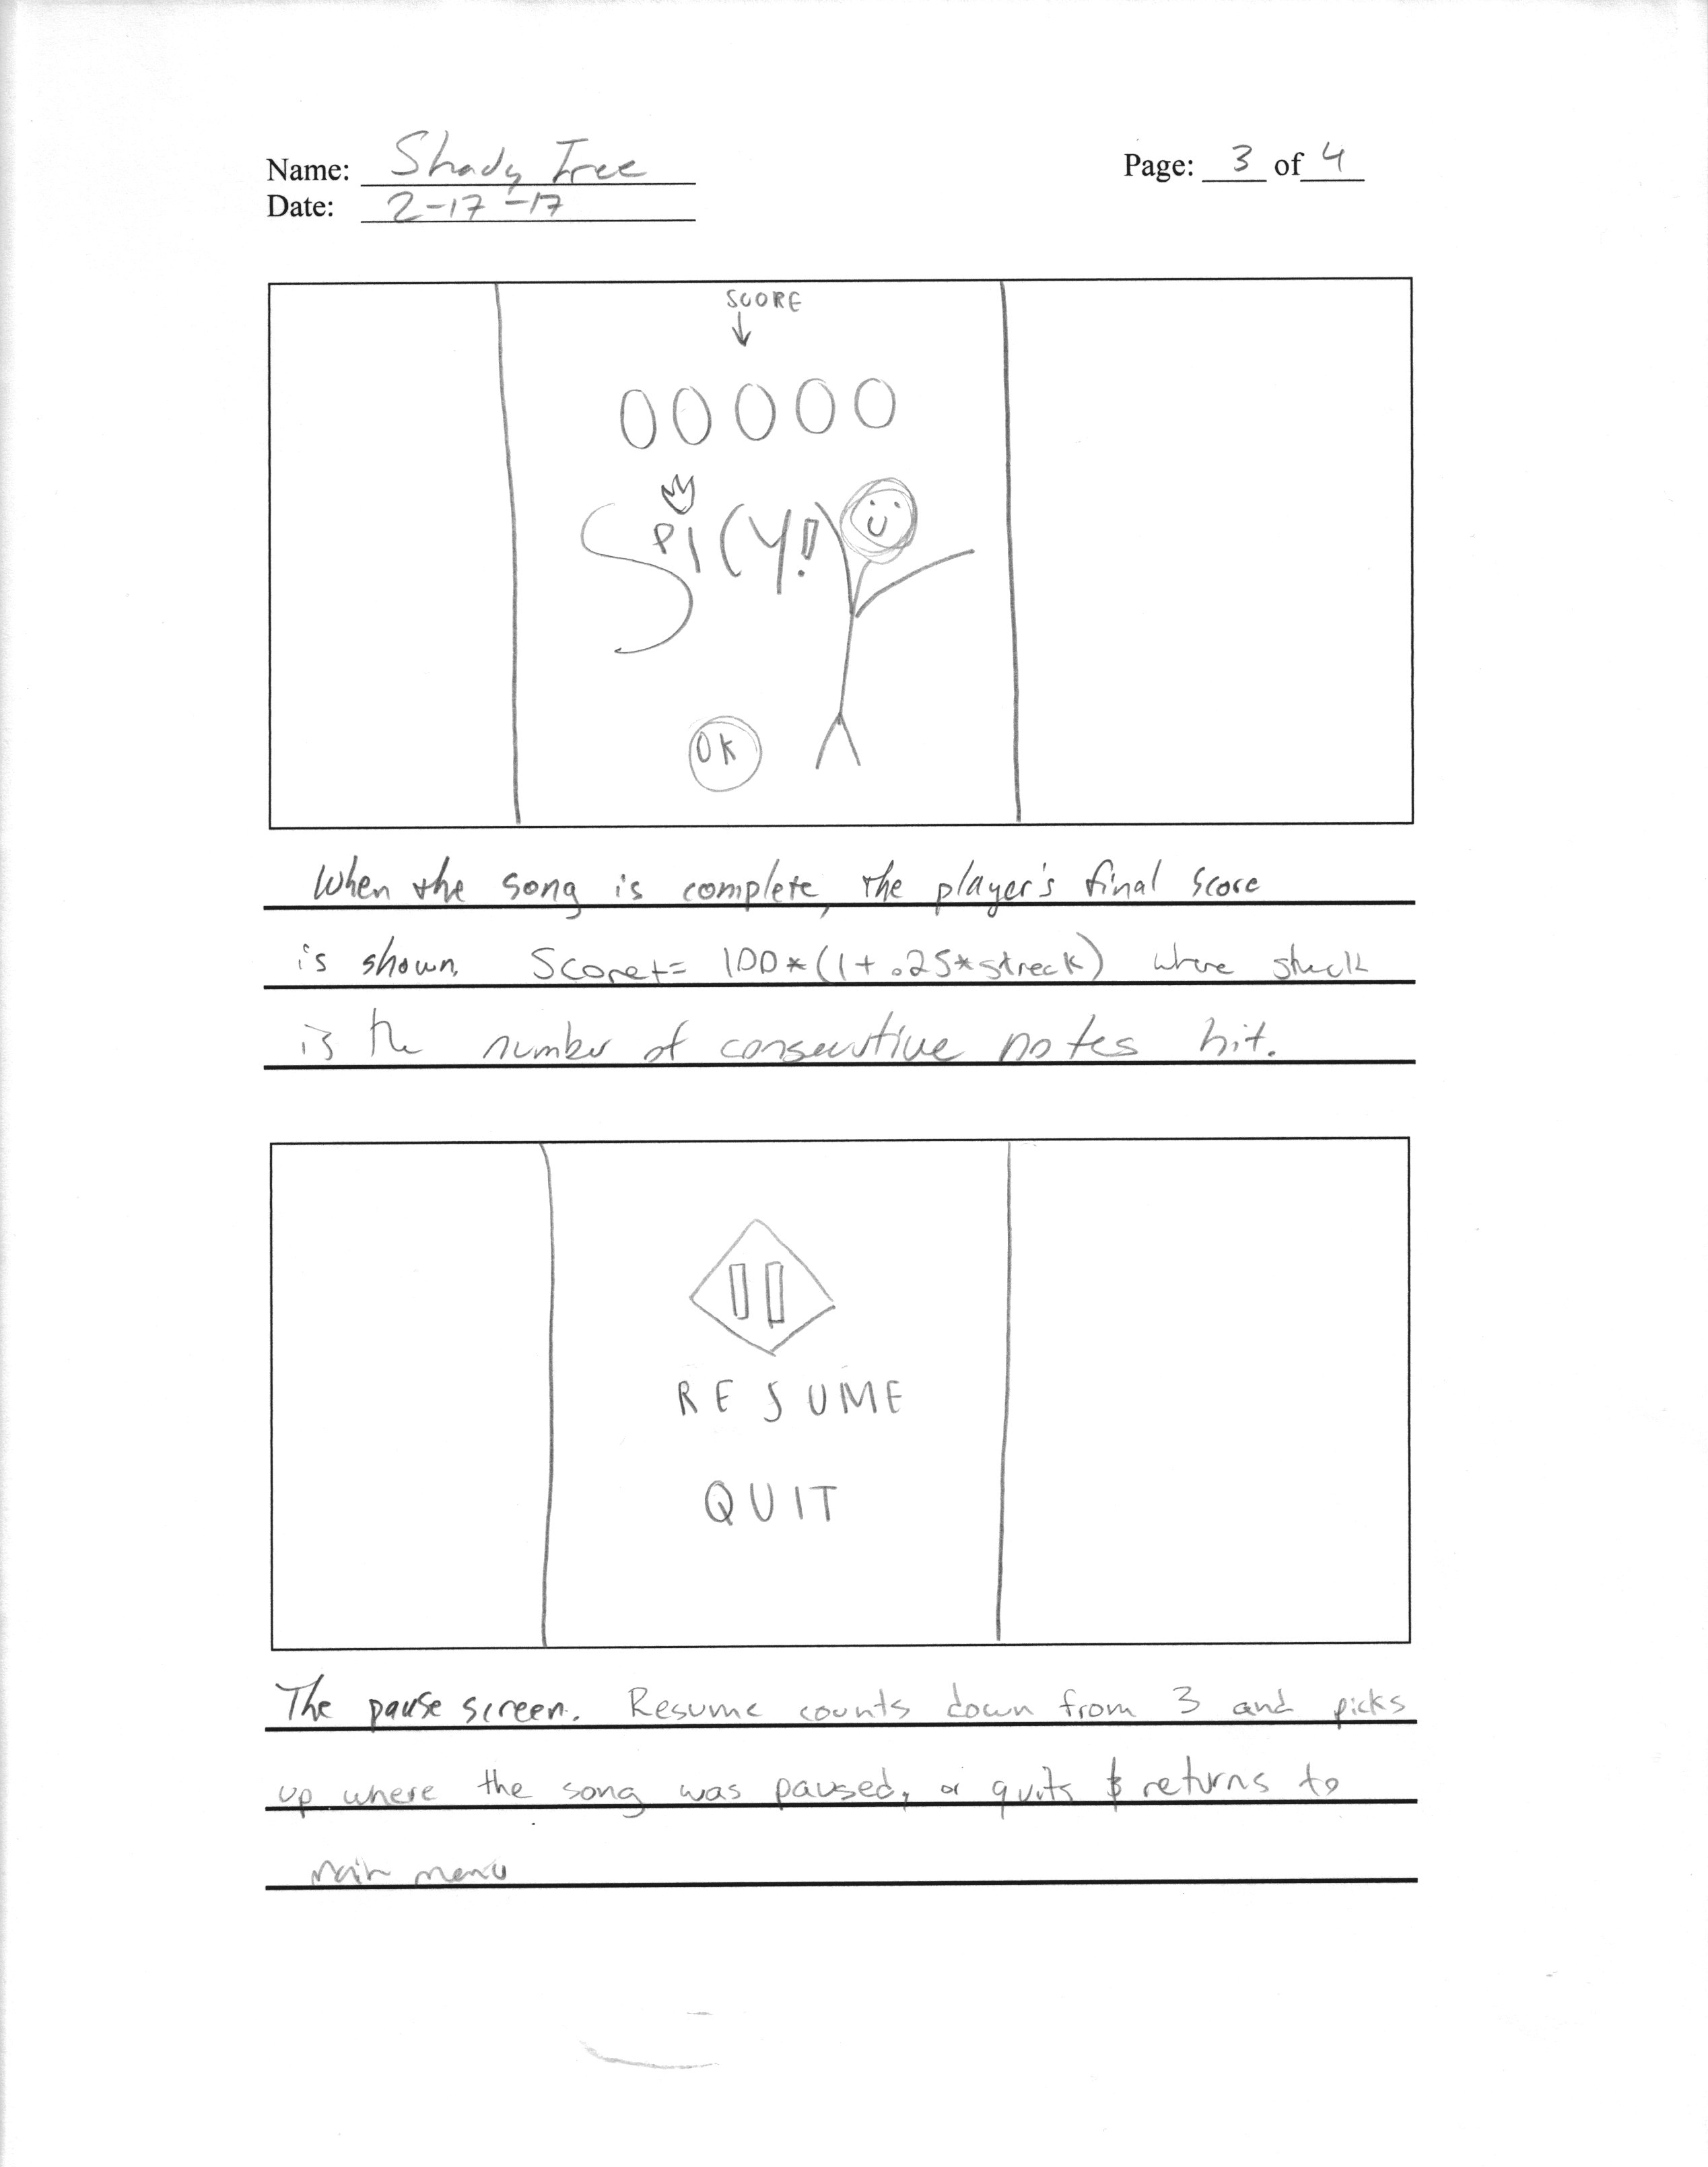 Name: Shady Tree
Page: 3 of 4
Date: 2-17-17
SCORE
00000
SPICY!
OK
When the song is complete, the player's final score
is shown. Score += 100*(1+.25*streak) where streak
is the number of consecutive notes hit.
RESUME
QUIT
The pause screen. Resume counts down from 3 and picks
up where the song was paused, or quits & returns to
main menu